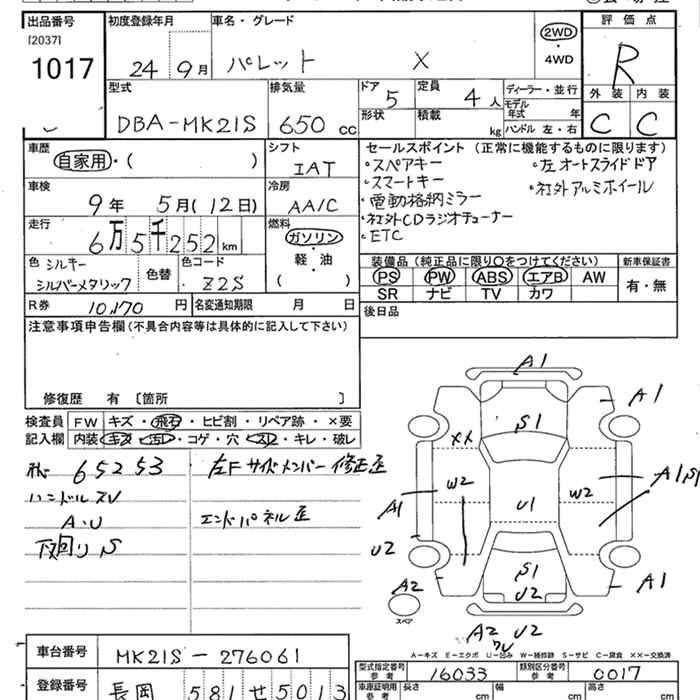 出品番号
[2037]
1017
初度登録年月
24 9月
車名・グレード
パレット X
2WD
・
4WD
評価点
R
外装 内装
C C
型式
DBA-MK21S
排気量
650 cc
ドア
5
定員
4 人
形状
積載
kg
ディーラー・並行
モデル
年式 年
ハンドル 左・右
車歴
自家用・( )
シフト
IAT
セールスポイント (正常に機能するものに限ります)
・スペアキー
・スマートキー
・電動格納ミラー
・社外CDラジオチューナー
・ETC
・左オートスライドドア
・社外アルミホイール
車検
9年 5月(12日)
冷房
AA/C
走行
6万5千252km
燃料
ガソリン
・
軽・油
( )
色 シルキー
シルバーメタリック
色替
色コード
Z2S
装備品 (純正品に限り○をつけてください)
PS PW ABS エアB AW
SR ナビ TV カワ
新車保証書
有・無
R券 10,170 円
名変通知期限 月 日
後日品
注意事項申告欄 (不具合内容等は具体的に記入して下さい)
修復歴 有 〔箇所 〕
検査員
記入欄
FW キズ・飛石・ヒビ割・リペア跡・×要
内装 キズ・汚れ・コゲ・穴・スレ・キレ・破レ
65253
ハンドルスレ
A・U
下回りS
左Fサイドメンバー修正歪
エンドパネル歪
A1
A1
S1
XX
W2
W2
U1
A1
A1S1
U2
S1
U2
A1
A2
スペア
A2 U2
A−キズ E−エクボ U−凹み W−補修跡 S−サビ C−腐食 ××−交換済
車台番号
MK21S-276061
登録番号
長岡 581せ5013
型式指定番号
参考
16033
類別区分番号
参考
0017
車庫証明用
参考
長さ cm
幅 cm
高さ cm